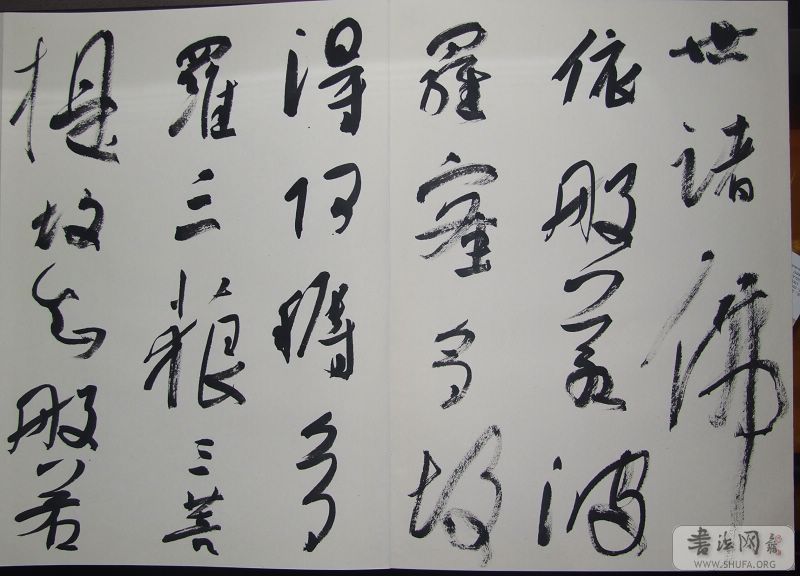 世諸佛
依般若波
羅蜜多故
得阿耨多
羅三藐三菩
提故知般若
書法网
WWW.SHUFA.ORG